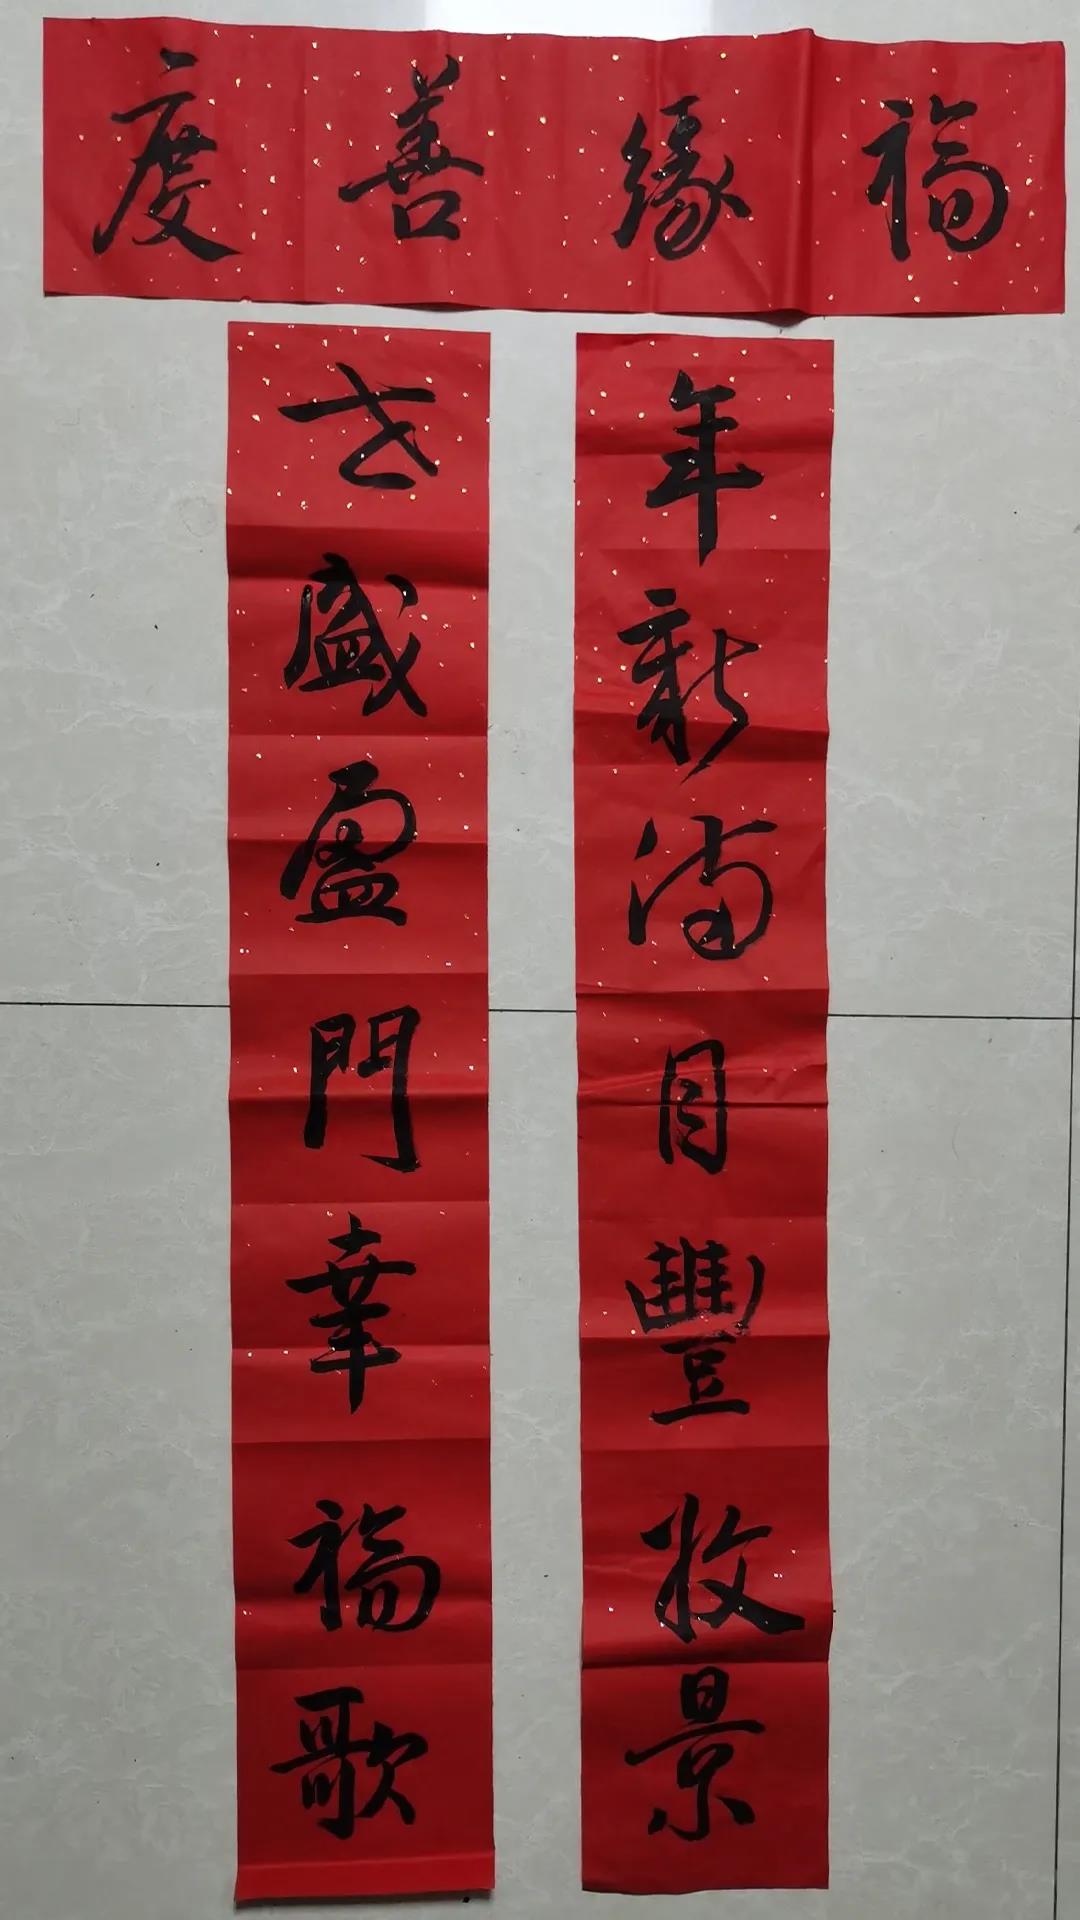 福緣善慶
年新滿目豐收景
世盛盈門幸福歌